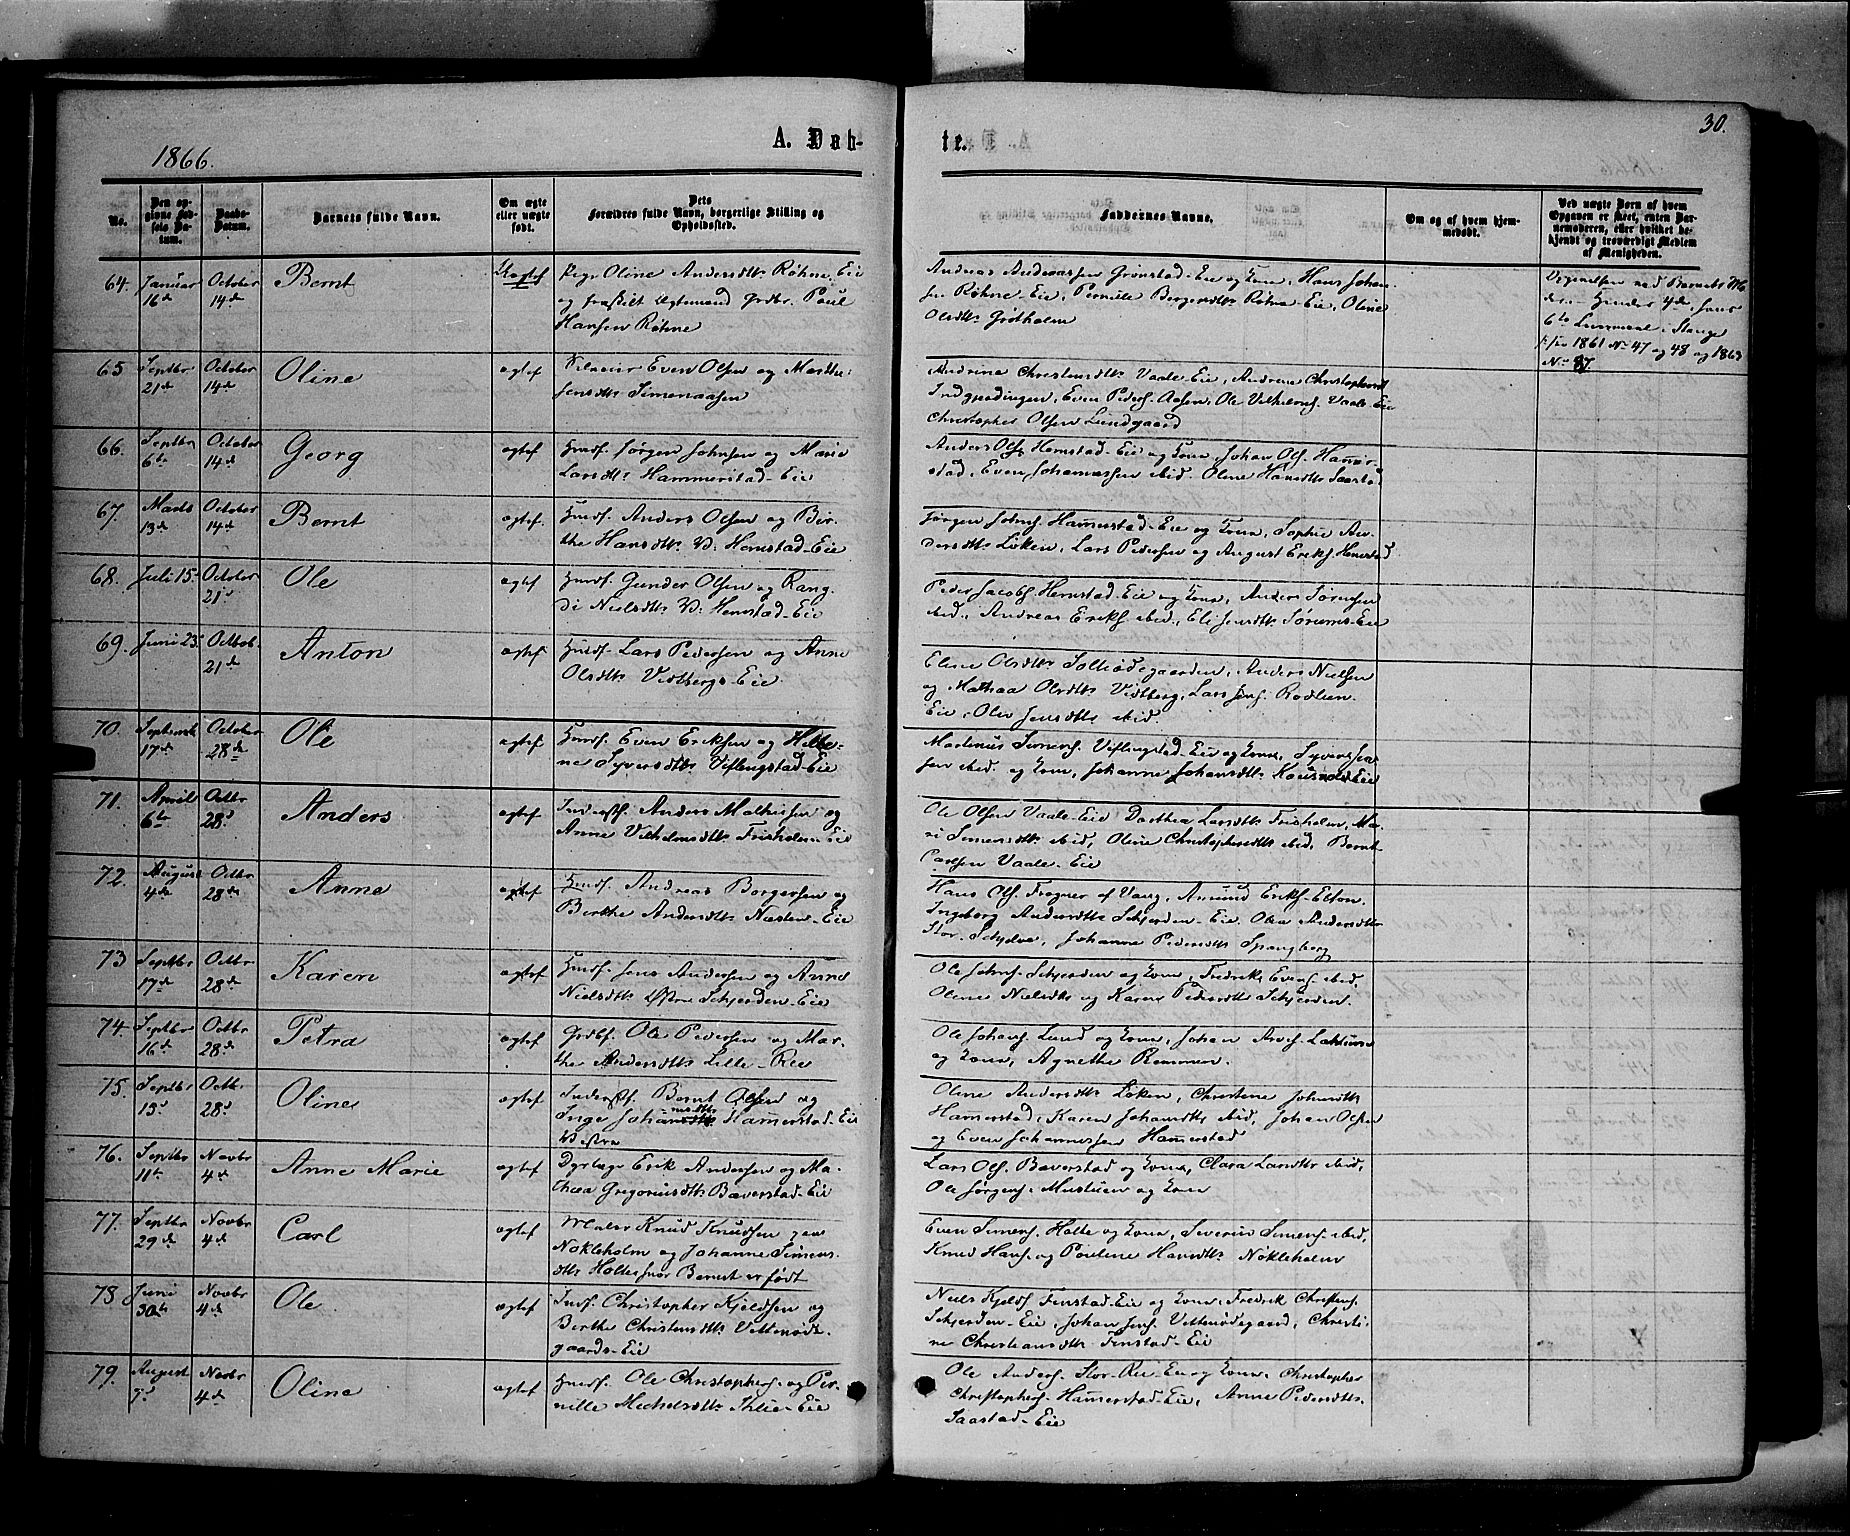 30.
1866.
A. Døb-
te.
No.
Den op-
givne Fød-
sels Da-
tum.
Daabs-
Datum.
Barnets fulde Navn.
Om ægte
eller uægte
født.
Dets
Forældres fulde Navn, borgerlige Stilling og
Opholdssted.
Faddernes Navne.
Om og af hvem hjem-
medøbt.
Ved uægte Børn af hvem
Opgaven er skeet, enten Bar-
nemoderen, eller hvilket be-
kjendt og troværdigt Medlem
af Menigheden.
64. Januar 16de October 14de Bernt Uægtef Pige Oline Andersdtr. Røhne Eie
og fraskilt Ægtemand Grdbr. Paul
Hansen Røhne
Andreas Andreassen Grønstad-Eie og Kone, Hans Johan-
sen Røhne-Eie, Pernille Borgersdtr. Røhne-Eie, Oline
Olsdtr. Grøtholm
6te Leiermaal i Stange
1861 No 47 og 48 og 1863
No 87.
65 Septbr 21de October 14de Oline ægtef Even Olsen og Marthe
Jensdtr. Simenaasen
Andrine Christensdtr. Vaale-Eie, Andrine Christophersdtr
Even Peders. Aasen, Ole Vilhelms. Vaale-Eie
Christopher Olsen Lundgaard
66. Septbr 6te October 14de Georg ægtef Huusf. Jørgen Johnsen og Marie
Larsdtr. Hammerstad-Eie
Anders Ols. Hemstad-Eie og Kone, Johan Ols. Hamer-
stad, Even Johannessen ibid. Oline Hansdtr. Saastad
67. Marts 13de October 14de Bernt ægtef. Huusf. Anders Olsen og Bir-
the Hansdtr. V. Hemstad-Eie
Jørgen Johns. Hamerstad-Eie og Kone, Sophie An-
dersdtr. Løken, Lars Pedersen og August Eriks. Hemstad
68. Juli 15. October 21d Ole ægtef Huusf. Gunder Olsen og Rang-
di Nielsdtr. V. Hemstad-Eie
Peder Jacobs. Hemstad-Eie og Kone, Anders Sørensen
ibid., Andreas Eriks. ibid., Eli Jensdtr. Sørums-Eie
69. Juni 25. Octob. 21de Anton ægtef Huusf. Lars Pedersen og Anne
Olsdtr. Vidtbergs-Eie
Eline Olsdtr. Anders Nielsen
og Mathea Olsdtr. Vidtberg, Lars Jens. Rødlien-
Eie, Olea Jensdtr. ibid.
70. Septembr 17de October 28de Ole ægtef Huusf. Even Eriksen og Helle-
ne Syversdtr. Viflingstad-Eie
Martinus Simens. Viflingstad-Eie og Kone, Syver
ibid. og Kone, Johanne Johansdtr.
71. April 6te Octbr 28d Anders ægtef Inderst. Anders Mathisen og
Anne Vilhelmsdtr. Frisholm-Eie
Ole Olsen Vaale-Eie, Dorthea Larsdtr. Frisholm, Ma-
ri Simensdtr. ibid, Oline Christophersdtr. ibid. Bernt
Larsen Vaale-Eie
72. August 4de Octbr 28de Anne ægtef Huusf. Andreas Borgersen og
Birthe Andersdtr. Næsten-Eie
Hans Ols. Frogner af Vang, Amund Eriks. Elton,
Ingeborg Andersdtr. Schjerden-Eie. Olea Andersdtr.
Stor- Johanne Pedersdtr. Spangberg
73 Septbr 17de Octbr 28de Karen ægtef Huusf. Jens Andersen og Anne
Nielsdtr. Østre Schjerden-Eie
Ole Johns. Schjerden og Kone, Fredrik Evens. ibid,
Oline Nielsdtr. og Karen Pedersdtr. Schjerden.
74. Septbr 16de Octbr 28de Petra ægtef Grdbf. Ole Pedersen og Mar-
the Andersdtr. Lille-Ree
Ole Johans. Lund og Kone, Johan
og Kone, Agnethe Remmen.
75. Septbr 13d Octb. 28d Oline ægtef Inderst. Bernt Olsen og
Inge Johannesdtr. Hamerstad-Eie
Vestre
Oline Andersdtr. Løken, Christine Johnsdtr
Hamerstad, Karen Johansdtr. ibid, Johan Olsen
og Even Johannessen Hamerstad
76. Septbr 11te Novbr 4de Anne Marie ægtef Dyrlæge Erik Andersen og Ma-
thea Gregoriusdtr. Bæverstad-Eie
Lars Ols. Bæverstad og Kone, Clara Larsdtr ibid,
Ole Jørgens. og Kone
77. Septbr 29de Novbr 4de Carl ægtef Maler Knud Knudsen
Nøkleholm og Johanne Simens-
dtr. Holte hvor Barnet er født
Even Simens. Holte og Kone, Severin Simens. ibid,
Knud Hans. og Pauline Hansdtr. Nøkleholm
78 Juni 30te Novbr 4de Ole ægtef Indf. Christopher Kjeldsen og
Berthe Christensdtr. Vettenøde-
gaards-Eie
Niels Kjelds. Finstad-Eie og Kone, Fredrik Christens.
Schjerden-Eie, Johan Jens. Vettenødegaard, Christi-
ne Christiansdtr. Finstad-Eie
79. August 7d Novbr 4de Oline ægtef Huusf. Ole Christophers. og Per-
nille Michelsdtr. Ihlie-Eie
Ole Anders. Stor-Ree-Eie og Kone, Christopher
Christophers. Hamerstad-Eie, Anne Pedersdtr.
Saastad-Eie